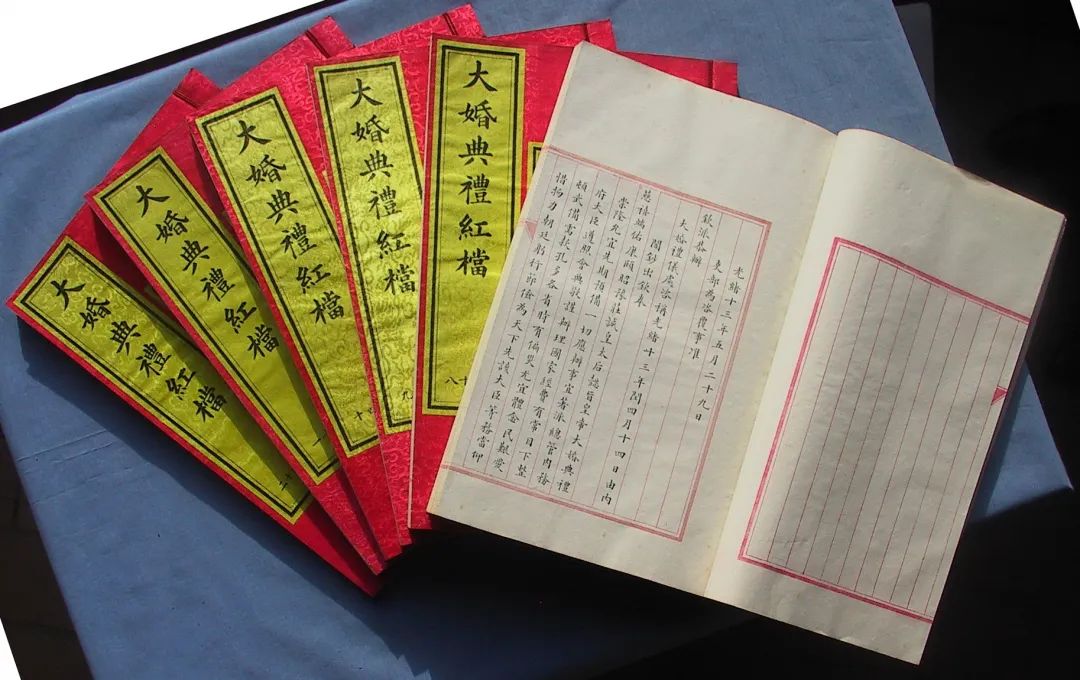 大婚典禮紅檔
大婚典禮紅檔
一
大婚典禮紅檔
大婚典禮紅檔
九
大婚典禮紅檔
八十
光緒十三年五月二十九日
吏部為咨覆事准
欽派恭辦
大婚禮儀處咨稱光緒十三年閏四月十四日由內
閣鈔出欽奉
慈禧端佑康頤昭豫莊誠皇太后懿旨皇帝大婚典禮
崇隆允宜先期預備一切應辦事宜著派總管內務
府大臣遵照會典敬謹辦理國家經費有常目下整
頓武備需款孔多各省時有偏災尤宜體念民艱愛
惜物力朝廷躬行節儉為天下先該大臣等務當仰